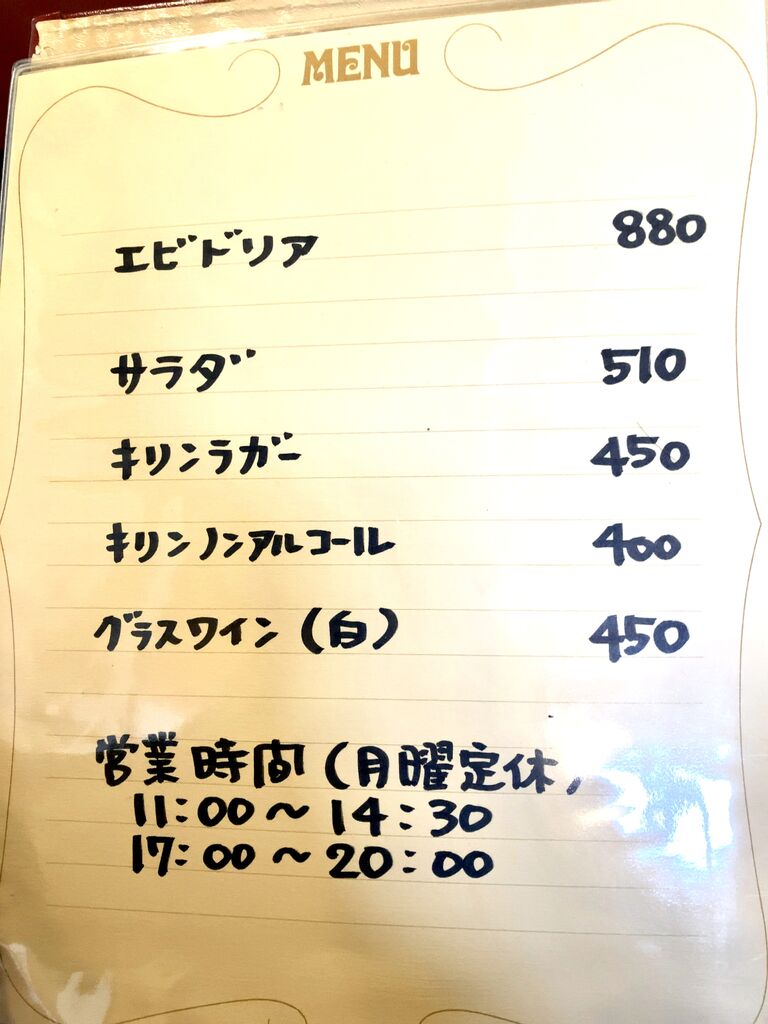 MENU
エビドリア 880
サラダ 510
キリンラガー 450
キリンノンアルコール 400
グラスワイン(白) 450
営業時間(月曜定休)
11:00〜14:30
17:00〜20:00